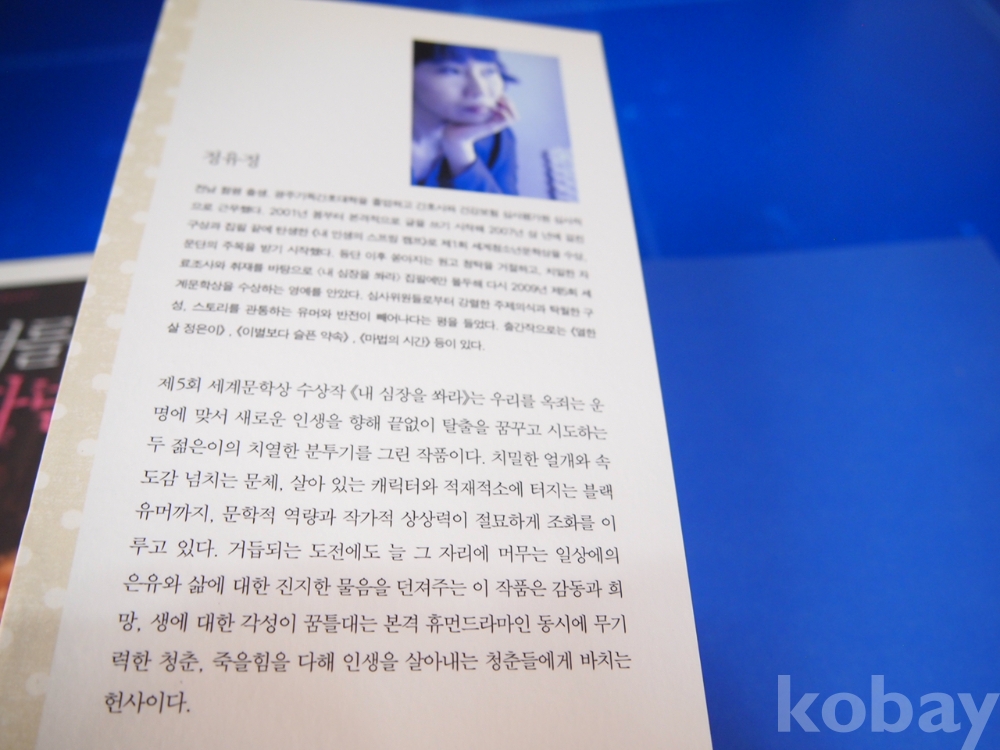 정유정
전남 함평 출생. 광주기독간호대학을 졸업하고 간호사와 건강보험 심사평가원 심사직
으로 근무했다. 2001년 봄부터 본격적으로 글을 쓰기 시작해 2007년 섬 년에 걸친
구상과 집필 끝에 탄생한 《내 인생의 스프링 캠프》로 제1회 세계청소년문학상을 수상,
문단의 주목을 받기 시작했다. 등단 이후 쏟아지는 원고 청탁을 거절하고, 치밀한 자
료조사와 취재를 바탕으로 《내 심장을 쏴라》 집필에만 몰두해 다시 2009년 제5회 세
계문학상을 수상하는 영예를 안았다. 심사위원들로부터 강렬한 주제의식과 탁월한 구
성, 스토리를 관통하는 유머와 반전이 빼어나다는 평을 들었다. 출간작으로는 《열한
살 정은이》, 《이별보다 슬픈 약속》, 《마법의 시간》 등이 있다.
제5회 세계문학상 수상작 《내 심장을 쏴라》는 우리를 옥죄는 운
명에 맞서 새로운 인생을 향해 끝없이 탈출을 꿈꾸고 시도하는
두 젊은이의 치열한 분투기를 그린 작품이다. 치밀한 얼개와 속
도감 넘치는 문체, 살아 있는 캐릭터와 적재적소에 터지는 블랙
유머까지, 문학적 역량과 작가적 상상력이 절묘하게 조화를 이
루고 있다. 거듭되는 도전에도 늘 그 자리에 머무는 일상에의
은유와 삶에 대한 진지한 물음을 던져주는 이 작품은 감동과 희
망, 생에 대한 각성이 꿈틀대는 본격 휴먼드라마인 동시에 무기
력한 청춘, 죽을힘을 다해 인생을 살아내는 청춘들에게 바치는
헌사이다.
를
kobay